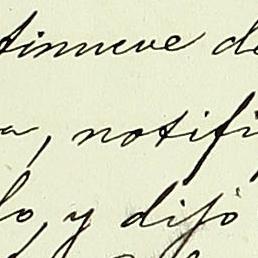 tinueve de
a, notifi
lo, y dijo